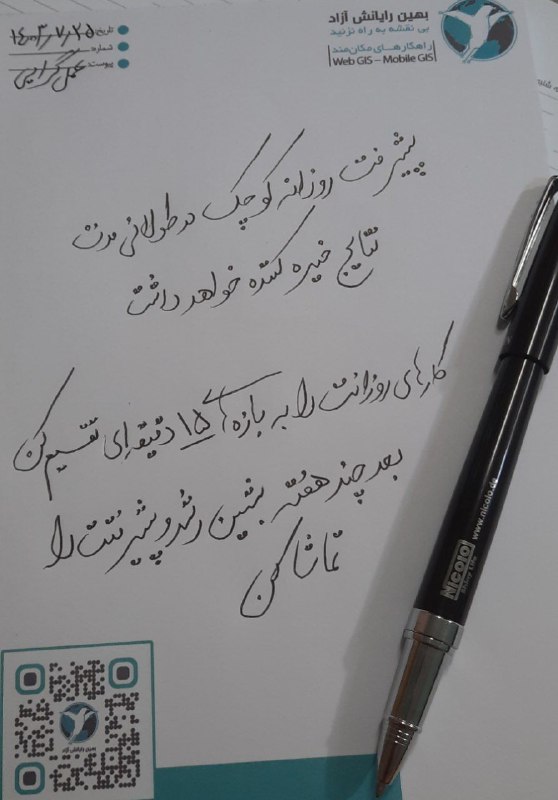 بهین رایانش آزاد
بی نقشه به راه نزنید
راهکارهای مکان‌مند
Web GIS – Mobile GIS
تاریخ: ۱۴۰۳/۷/۲۵
شماره:
پیوست: عمل گرایی
پیشرفت روزانه کوچک در طولانی مدت
نتایج خیره کننده خواهد داشت
کارهای روزانت را به بازه های ۱۵ دقیقه ای تقسیم کن
بعد چند هفته بشین رشد و پیشرفتت را
تماشا کن
Nicolo
www.nicolo.de
بهین رایانش آزاد